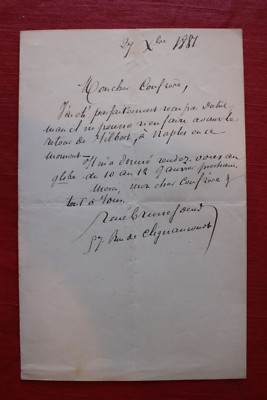 27 Xbre 1881
Mon cher Confrère,
J'ai été parfaitement reçu par
man et ne pense rien faire avant le
retour de Filbert, à Naples en ce
moment. Il m'a donné rendez-vous au
globe du 10 au 12 Janvier prochain.
mon cher Confrère &
tout à vous.
René
57 Rue de Clignancourt